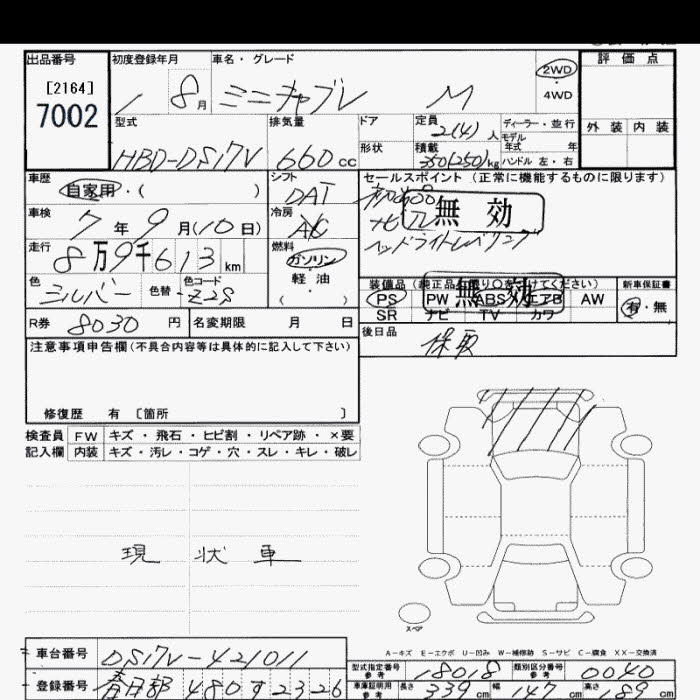 出品番号 初度登録年月 車名・グレード 評価点
[2164]
7002
8月 ミニキャブV M
2WD
・
4WD
型式 排気量 ドア 定員 2(4)人 ディーラー・並行
モデル
年式 年
外装 内装
HBD-DS17V 660cc 形状 積載 350(250)kg ハンドル 左・右
車歴 自家用・( ) シフト DAT
セールスポイント (正常に機能するものに限ります)
車検 7年9月(10日) 冷房 AC
無効
ナビ TV
ヘッドライトレベリング
走行 8万9千613km
燃料 ガソリン
軽油
・
( )
色 シルバー 色替 色コード Z2S
装備品 新車保証書
無効
PS PW ABS エアB AW 有・無
SR ナビ TV カワ
R券 8030円 名変期限 月 日
後日品 保取
注意事項申告欄(不具合内容等は具体的に記入して下さい)
修復歴 有 [箇所 ]
検査員 FW キズ・飛石・ヒビ割・リペア跡・×要
記入欄 内装 キズ・汚レ・コゲ・穴・スレ・キレ・破レ
現状車
スペア
A-キズ E-エクボ U-凹み W-補修跡 S-サビ C-腐食 XX-交換済
車台番号 DS17V-421011
型式指定番号 参考 18018 類別区分番号 参考 0040
登録番号 春日部 480す2326
車庫証明用 参考 長さ 339cm 幅 147cm 高さ 189cm